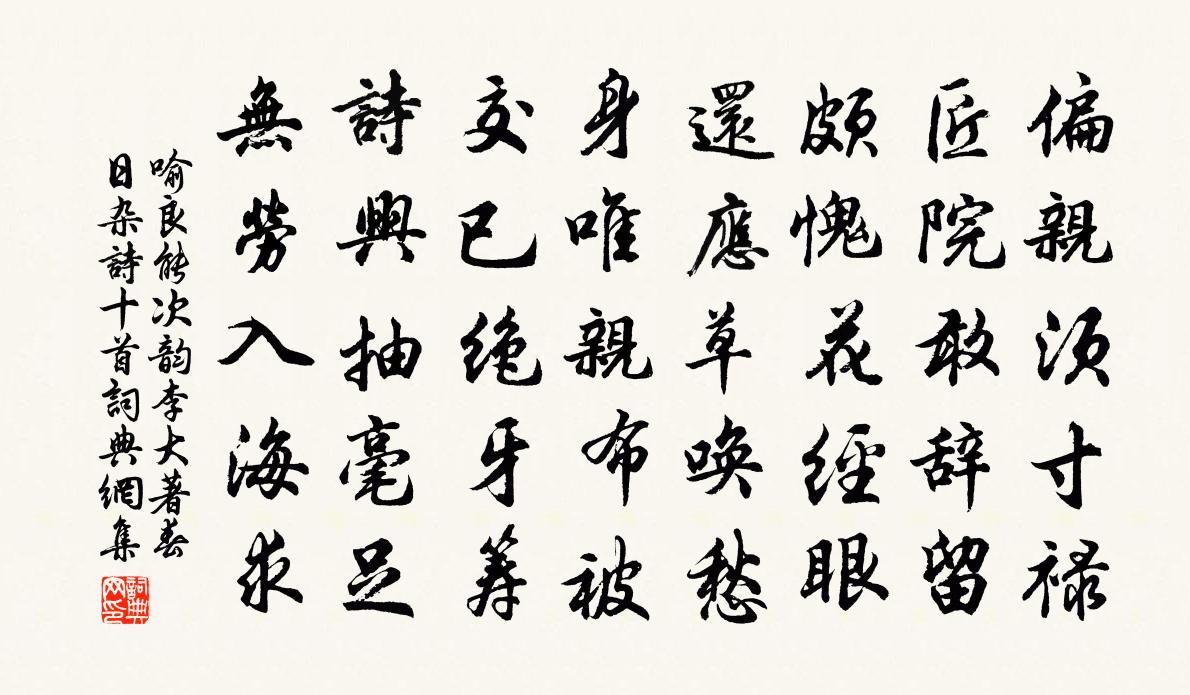 偏親須寸禄
匠院敢辞留
頗愧花經眼
還應草喚愁
身唯親布被
交已絶牙筹
詩興抽毫足
無勞入海求
喻良能次韵李大著春
日杂詩十首詞典網集